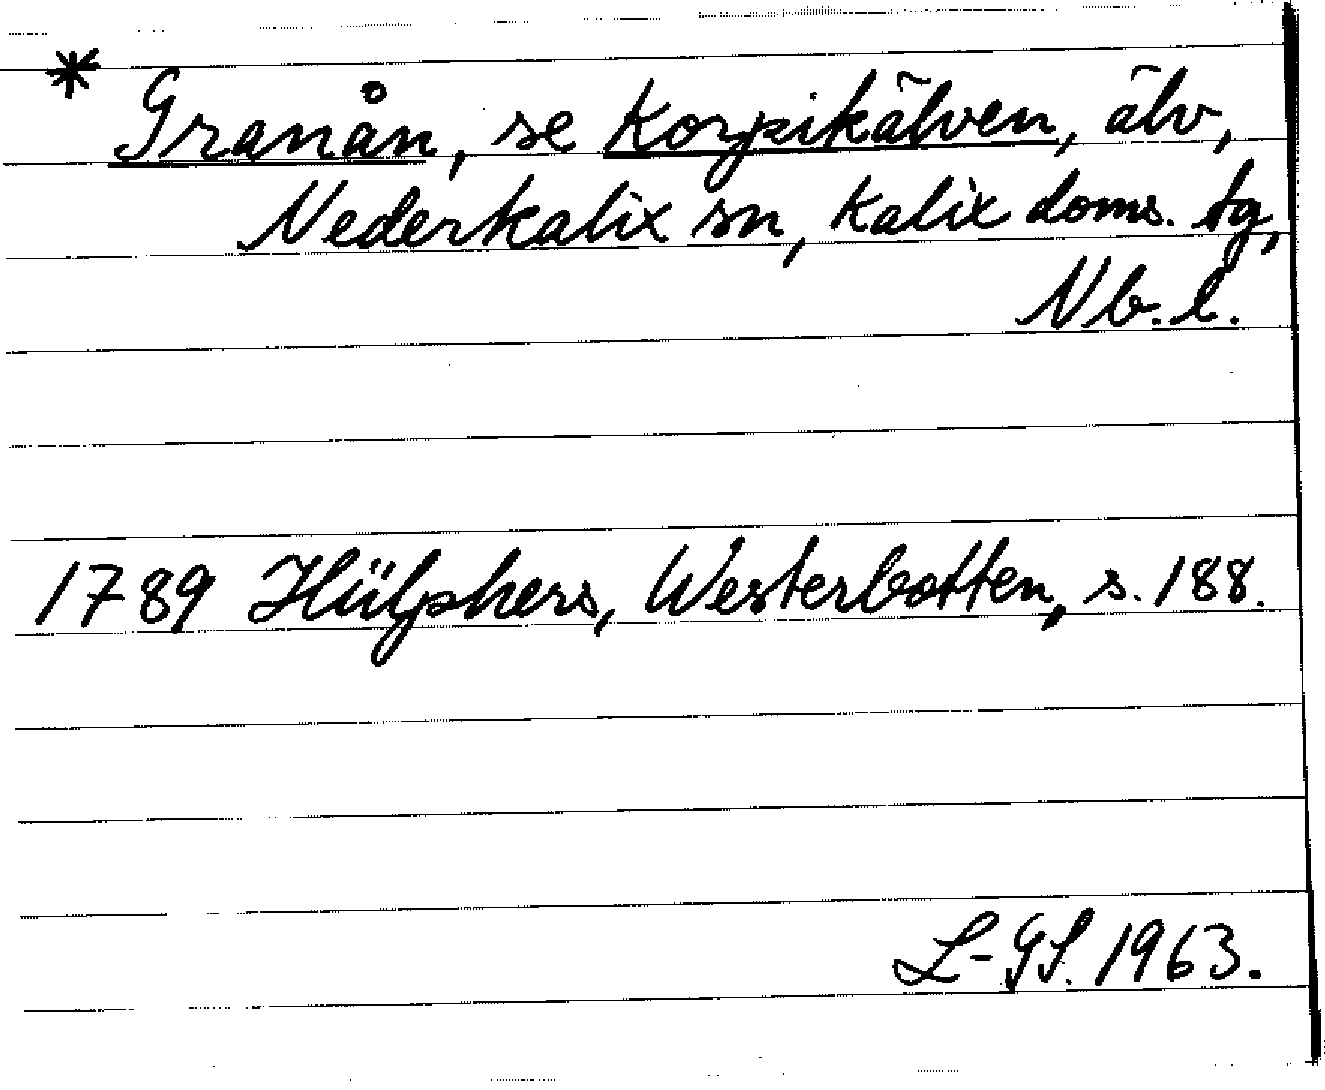 * Granån, se Korpikälven, älv,
Nederkalix sn, Kalix doms. tg,
Nb. l.
1789 Hülphers, Westerbotten, s. 188.
L-GS. 1963.